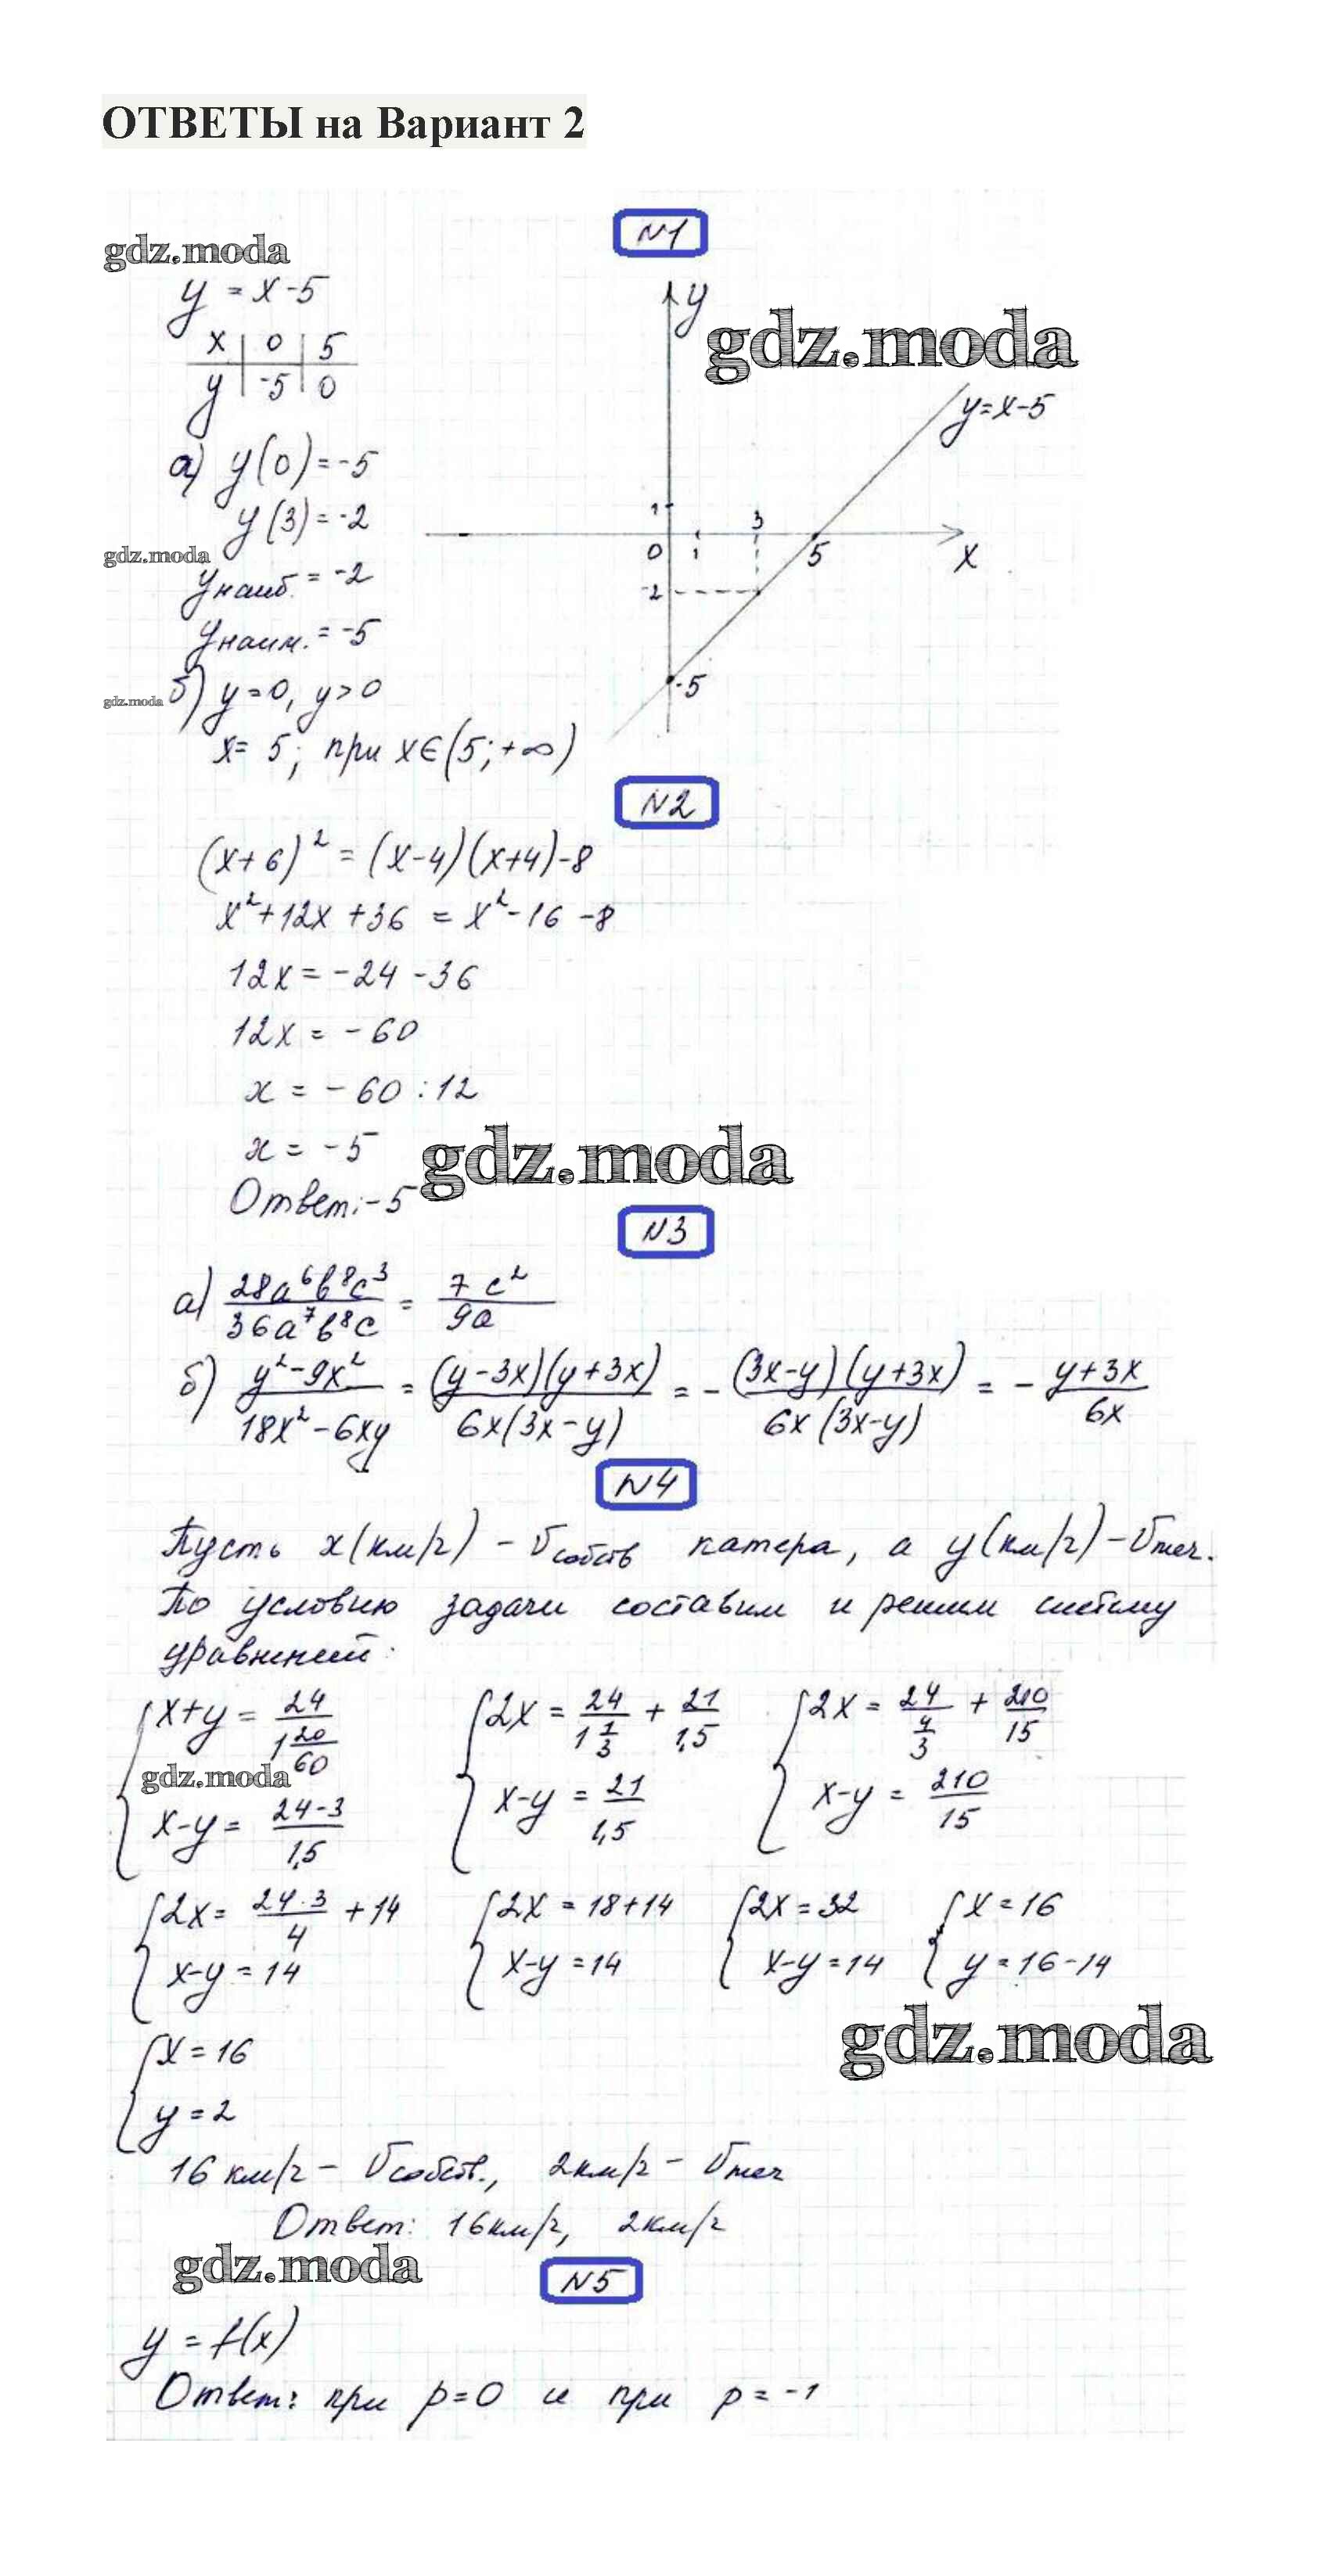 ОТВЕТЫ на Вариант 2
№1
gdz.moda
y = x - 5
x | 0 | 5
y | -5 | 0
y
gdz.moda
y=x-5
1
3
0 1 5 x
-2
-5
а) y(0) = -5
y(3) = -2
gdz.moda
yнаиб. = -2
yнаим. = -5
gdz.moda
б) y=0, y>0
x= 5; при x∈(5;+∞)
№2
(x+6)² = (x-4)(x+4)-8
x²+12x+36 = x²-16-8
12x = -24-36
12x = -60
x = -60:12
x = -5
gdz.moda
Ответ: -5
№3
а) 28a⁶b⁸c³/36a⁷b⁸c = 7c²/9a
б) y²-9x²/18x²-6xy = (y-3x)(y+3x)/6x(3x-y) = - (3x-y)(y+3x)/6x(3x-y) = - y+3x/6x
№4
Пусть x(км/ч) - Vсобств катера, а y(км/ч) - Vтеч.
По условию задачи составим и решим систему
уравнений:
{x+y = 24/1 20/60 {2x = 24/1 1/3 + 21/1,5 {2x = 24/4/3 + 210/15
gdz.moda
x-y = 24-3/1,5 x-y = 21/1,5 x-y = 210/15
{2x = 24·3/4 + 14 {2x = 18+14 {2x = 32 {x = 16
x-y = 14 x-y = 14 x-y = 14 y = 16-14
gdz.moda
{x = 16
y = 2
16 км/ч - Vсобств., 2км/ч - Vтеч
Ответ: 16км/ч, 2км/ч
gdz.moda
№5
y = f(x)
Ответ: при p=0 и при p=-1